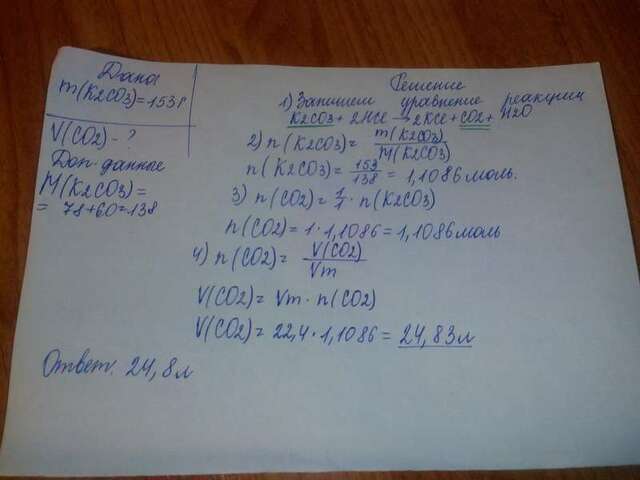 Дано
m(K2CO3)=153г
V(CO2)-?
Доп. данные
M(K2CO3)=
= 78+60=138
Решение
1) Запишем уравнение реакции
K2CO3+2HCl→2KCl+CO2+H2O
2) n(K2CO3)= m(K2CO3)/M(K2CO3)
n(K2CO3)= 153/138 = 1,1086 моль.
3) n(CO2)= 1/1 · n(K2CO3)
n(CO2)=1·1,1086=1,1086 моль
4) n(CO2)= V(CO2)/Vm
V(CO2)= Vm· n(CO2)
V(CO2)=22,4·1,1086= 24,83л
Ответ. 24,8л